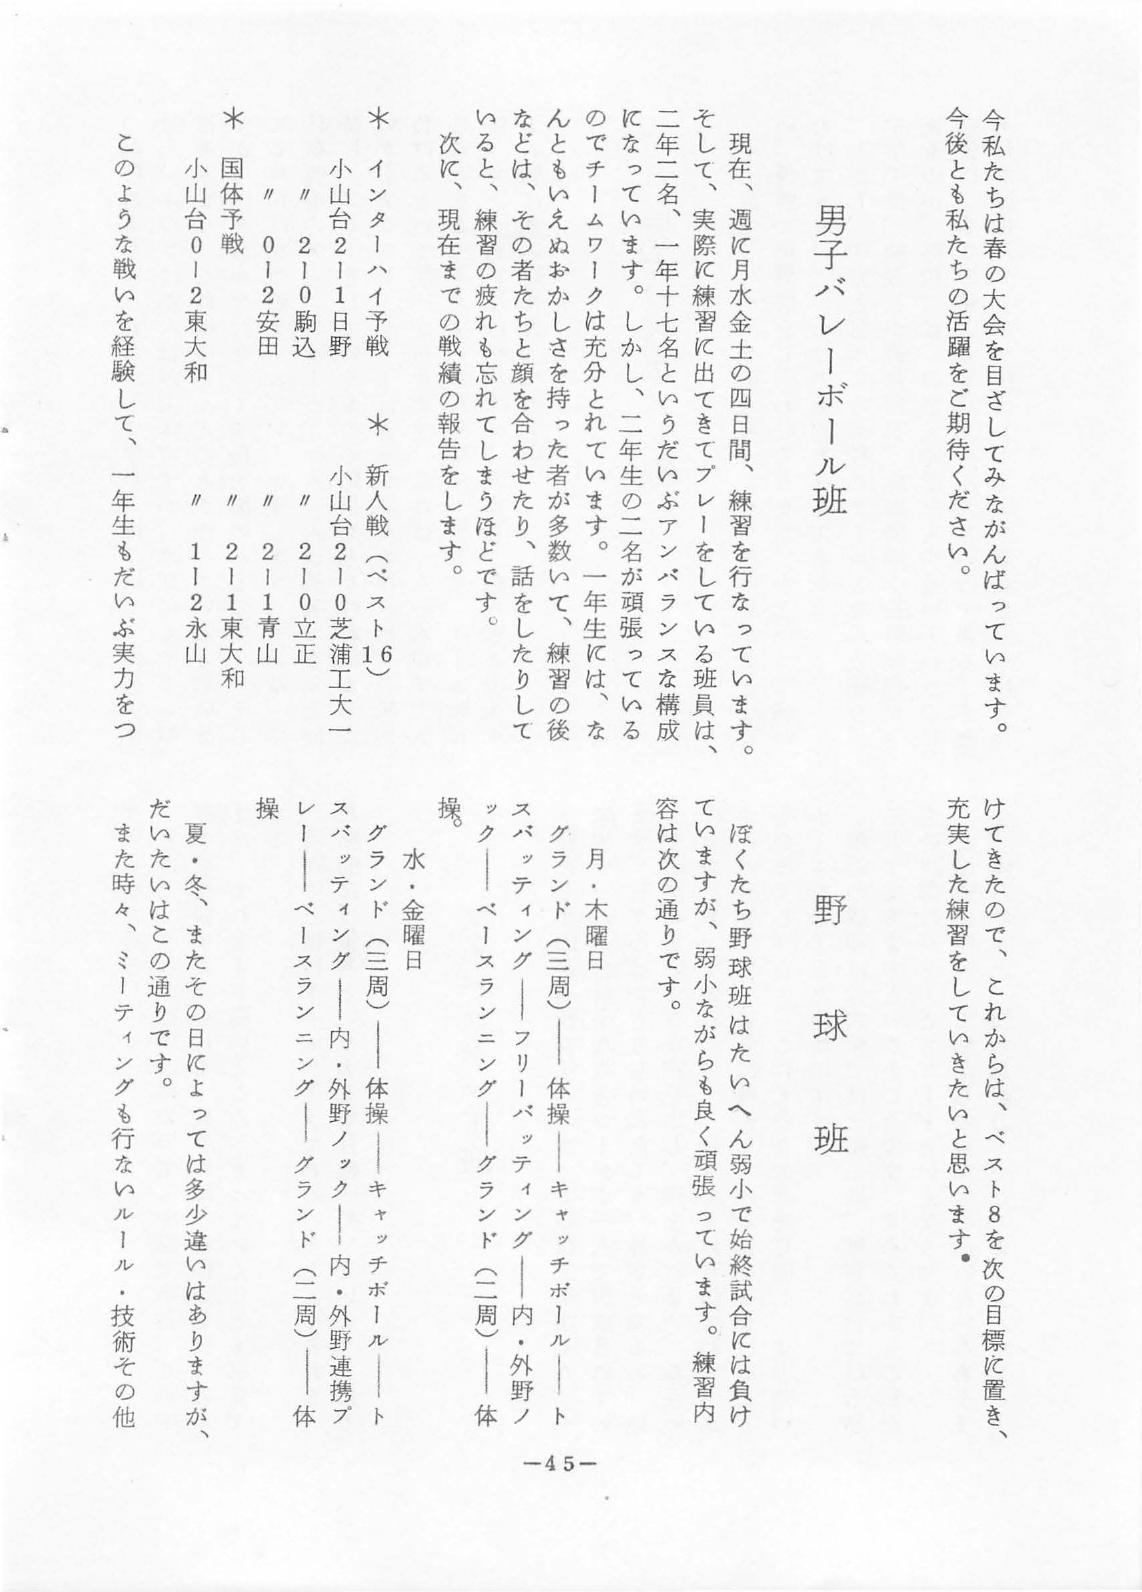 今私たちは春の大会を目ざしてみながんばっています。
今後とも私たちの活躍をご期待ください。
男子バレーボール班
現在、週に月水金土の四日間、練習を行なっています。
そして、実際に練習に出てきてプレーをしている班員は、
二年二名、一年十七名というだいぶアンバランスな構成
になっています。しかし、二年生の二名が頑張っている
のでチームワークは充分とれています。一年生には、な
んともいえぬおかしさを持った者が多数いて、練習の後
などは、その者たちと顔を合わせたり、話をしたりして
いると、練習の疲れも忘れてしまうほどです。
次に、現在までの戦績の報告をします。
＊ インターハイ予戦
小山台2ー1日野
〃 2ー0駒込
〃 0ー2安田
＊ 国体予戦
小山台0ー2東大和
＊ 新人戦（ベスト16）
小山台2ー0芝浦工大一
〃 2ー0立正
〃 2ー1青山
〃 2ー1東大和
〃 1ー2永山
このような戦いを経験して、一年生もだいぶ実力をつ
けてきたので、これからは、ベスト8を次の目標に置き、
充実した練習をしていきたいと思います。
野球班
ぼくたち野球班はたいへん弱小で始終試合には負け
ていますが、弱小ながらも良く頑張っています。練習内
容は次の通りです。
月・木曜日
グランド（三周）――体操――キャッチボール――ト
スバッティング――フリーバッティング――内・外野ノ
ック――ベースランニング――グランド（二周）――体
操。
水・金曜日
グランド（三周）――体操――キャッチボール――ト
スバッティング――内・外野ノック――内・外野連携プ
レー――ベースランニング――グランド（二周）――体
操
夏・冬、またその日によっては多少違いはありますが、
だいたいはこの通りです。
また時々、ミーティングも行ないルール・技術その他
―45―